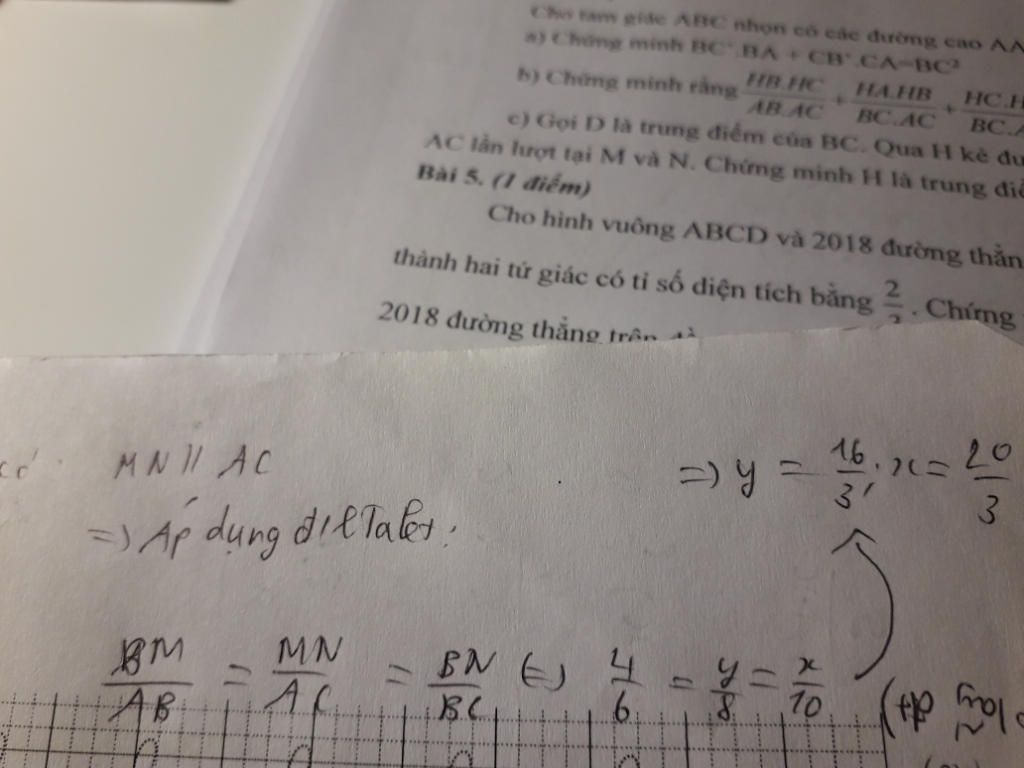 Cho tam giác ABC nhọn có các đường cao AA
a) Chứng minh BC'.BA + CB'.CA=BC²
b) Chứng minh rằng HB.HC/AB.AC + HA.HB/BC.AC + HC.H/BC.A
c) Gọi D là trung điểm của BC. Qua H kẻ đư
AC lần lượt tại M và N. Chứng minh H là trung điể
Bài 5. (1 điểm)
Cho hình vuông ABCD và 2018 đường thẳn
thành hai tứ giác có tỉ số diện tích bằng 2/3 . Chứng
2018 đường thẳng trên
MN // AC
=> y = 16/3 ; x = 20/3
=> Áp dụng đ/l Talet:
BM/AB = MN/AC = BN/BC (=) 4/6 = y/8 = x/10